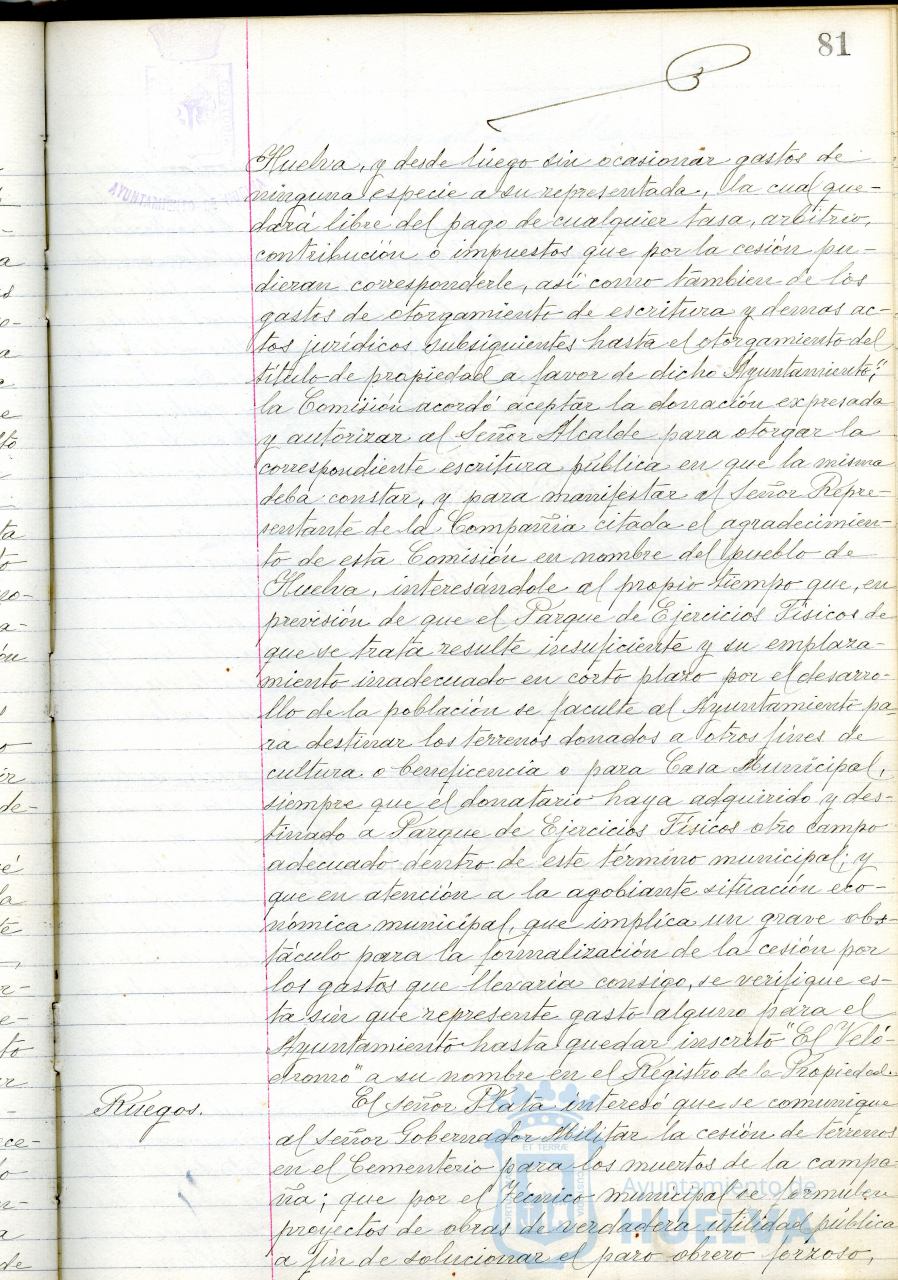 81
AYUNTAMIENTO DE
Huelva, y desde luego sin ocasionar gastos de
ninguna especie a su representada, la cual que-
dará libre del pago de cualquier tasa, arbitrio,
contribución o impuestos que por la cesión pu-
dieran corresponderle, así como tambien de los
gastos de otorgamiento de escritura y demas ac-
tos jurídicos subsiguientes hasta el otorgamiento del
título de propiedad a favor de dicho Ayuntamiento";
la Comisión acordó aceptar la donación expresada
y autorizar al Señor Alcalde para otorgar la
correspondiente escritura pública en que la misma
deba constar, y para manifestar al Señor Repre-
sentante de la Compañia citada el agradecimien-
to de esta Comisión en nombre del pueblo de
Huelva, interesándole al propio tiempo que, en
previsión de que el Parque de Ejercicios Físicos de
que se trata resulte insuficiente y su emplaza-
miento inadecuado en corto plazo por el desarro-
llo de la población se faculte al Ayuntamiento pa-
ra destinar los terrenos donados a otros fines de
cultura o beneficencia o para Casa Municipal,
siempre que el donatario haya adquirido y des-
tinado a Parque de Ejercicios Físicos otro campo
adecuado dentro de este término municipal; y
que en atención a la agobiante situación eco-
nómica municipal, que implica un grave obs-
táculo para la formalización de la cesión por
los gastos que llevaria consigo, se verifique es-
ta sin que represente gasto alguno para el
Ayuntamiento hasta quedar inscrito "El Veló-
dromo" a su nombre en el Registro de la Propiedad.
Ruegos.
El señor Plata interesó que se comunique
al señor Gobernador Militar la cesión de terrenos
en el Cementerio para los muertos de la campa-
ña; que por el Técnico municipal se formulen
proyectos de obras de verdadera utilidad pública
a fin de solucionar el paro obrero forzoso,
Ayuntamiento de
HUELVA